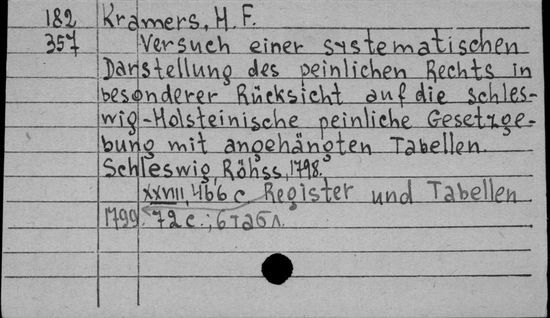 182 Kramers, H. F.
357 Versuch einer systematischen
Darstellung des peinlichen Rechts in
besonderer Rücksicht auf die Schles-
wig-Holsteinische peinliche Gesetzge-
bung mit angehängten Tabellen.
Schleswig, Röhss, 1798.
XXVIII, 466 c Register und Tabellen
1799. 72 c.; 6 табл.